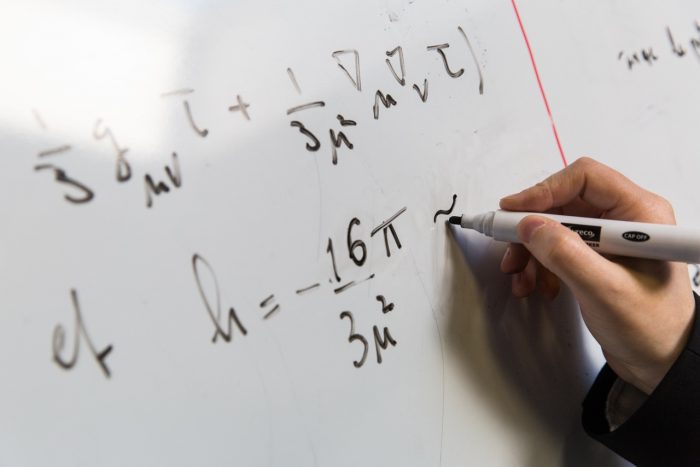 1/3 g_μν τ + 1/(3μ²) ∇_μ ∇_ν τ)
et h = - 16π/(3μ²) ~
CAP OFF